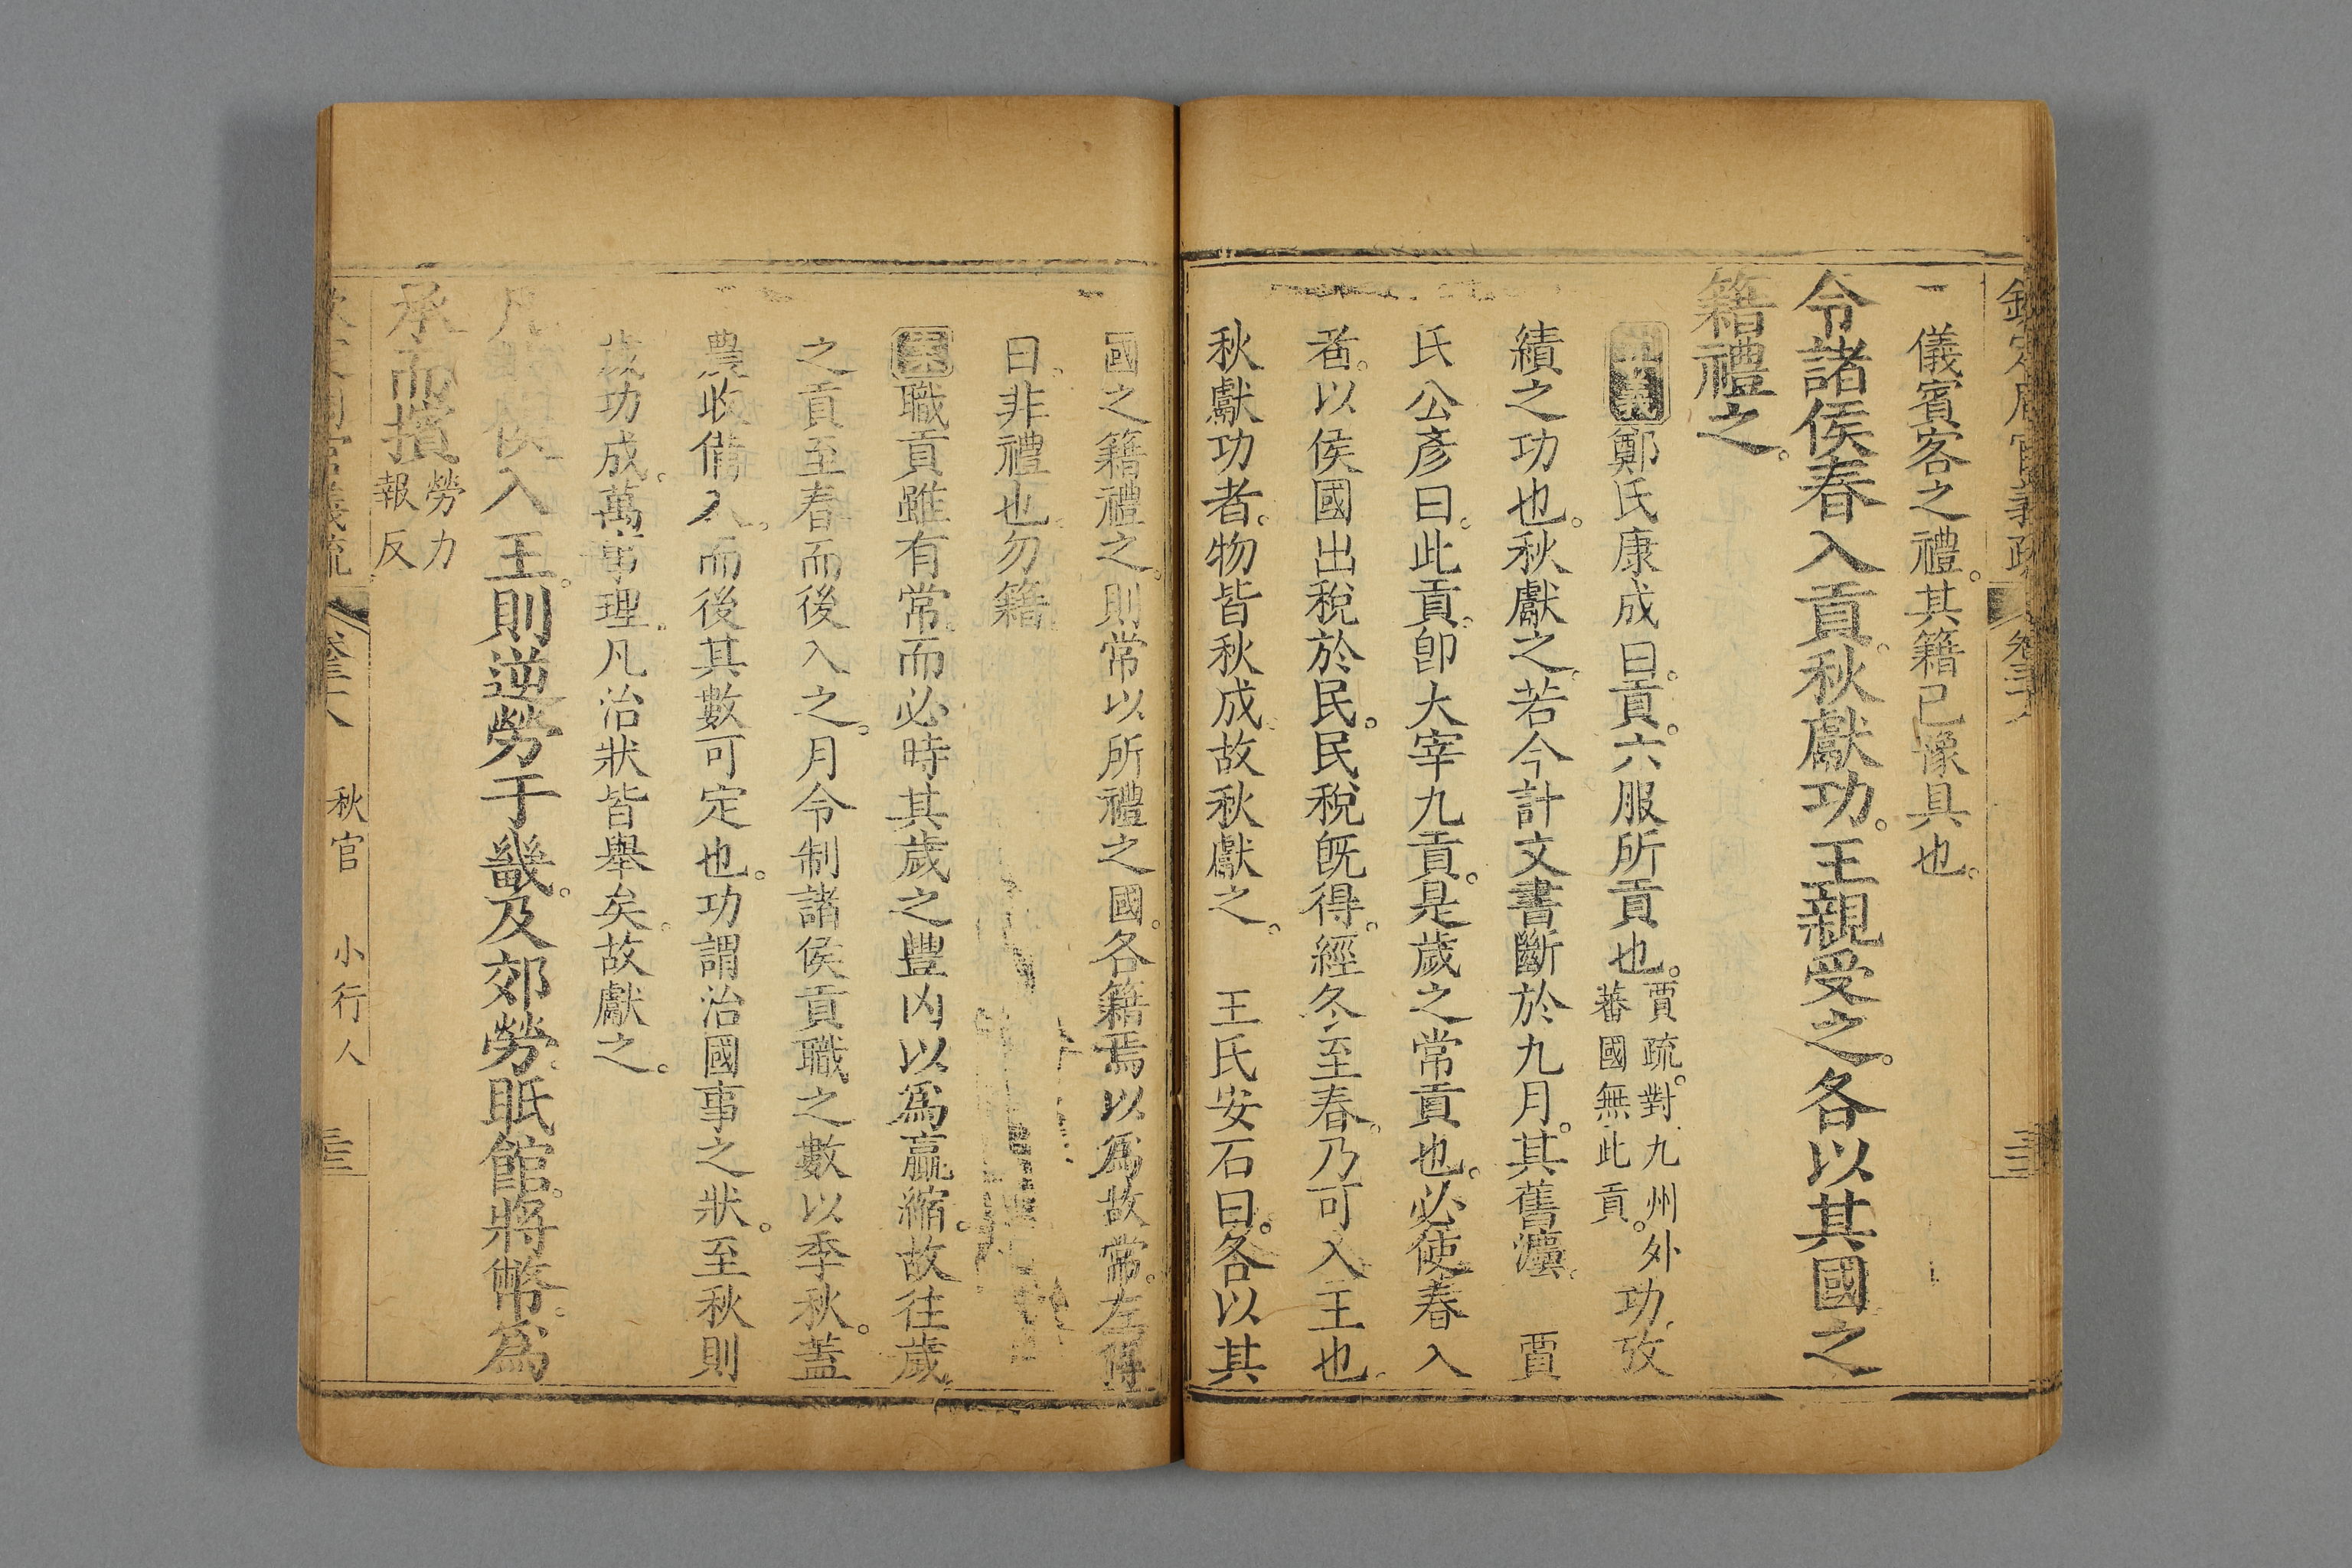 欽定周官義疏 卷三十八 三三
儀賓客之禮。其籍已豫具也。
令諸侯春入貢。秋獻功。王親受之。各以其國之
籍禮之。
正義鄭氏康成曰。貢。六服所貢也。賈疏。對九州外蕃國無此貢。功。攷
績之功也。秋獻之。若今計文書斷於九月。其舊灋。 賈
氏公彥曰。此貢。卽大宰九貢。是歲之常貢也。必使春入
者。以侯國出稅於民。民稅旣得。經冬至春。乃可入王也。
秋獻功者。物皆秋成。故秋獻之。 王氏安石曰。各以其
國之籍禮之。則常以所禮之國。各籍焉以爲故常。左傳
曰。非禮也。勿籍
案職貢雖有常。而必時其歲之豐凶以爲贏縮。故往歲
之貢至春而後入之。月令制諸侯貢職之數以季秋。蓋
農收備入。而後其數可定也。功謂治國事之狀。至秋則
歲功成。萬事理。凡治狀皆舉矣。故獻之。
凡諸侯入王。則逆勞于畿。及郊勞。眡館。將幣。爲
承而擯勞力報反
欽定周官義疏 卷三十八 秋官 小行人 三三